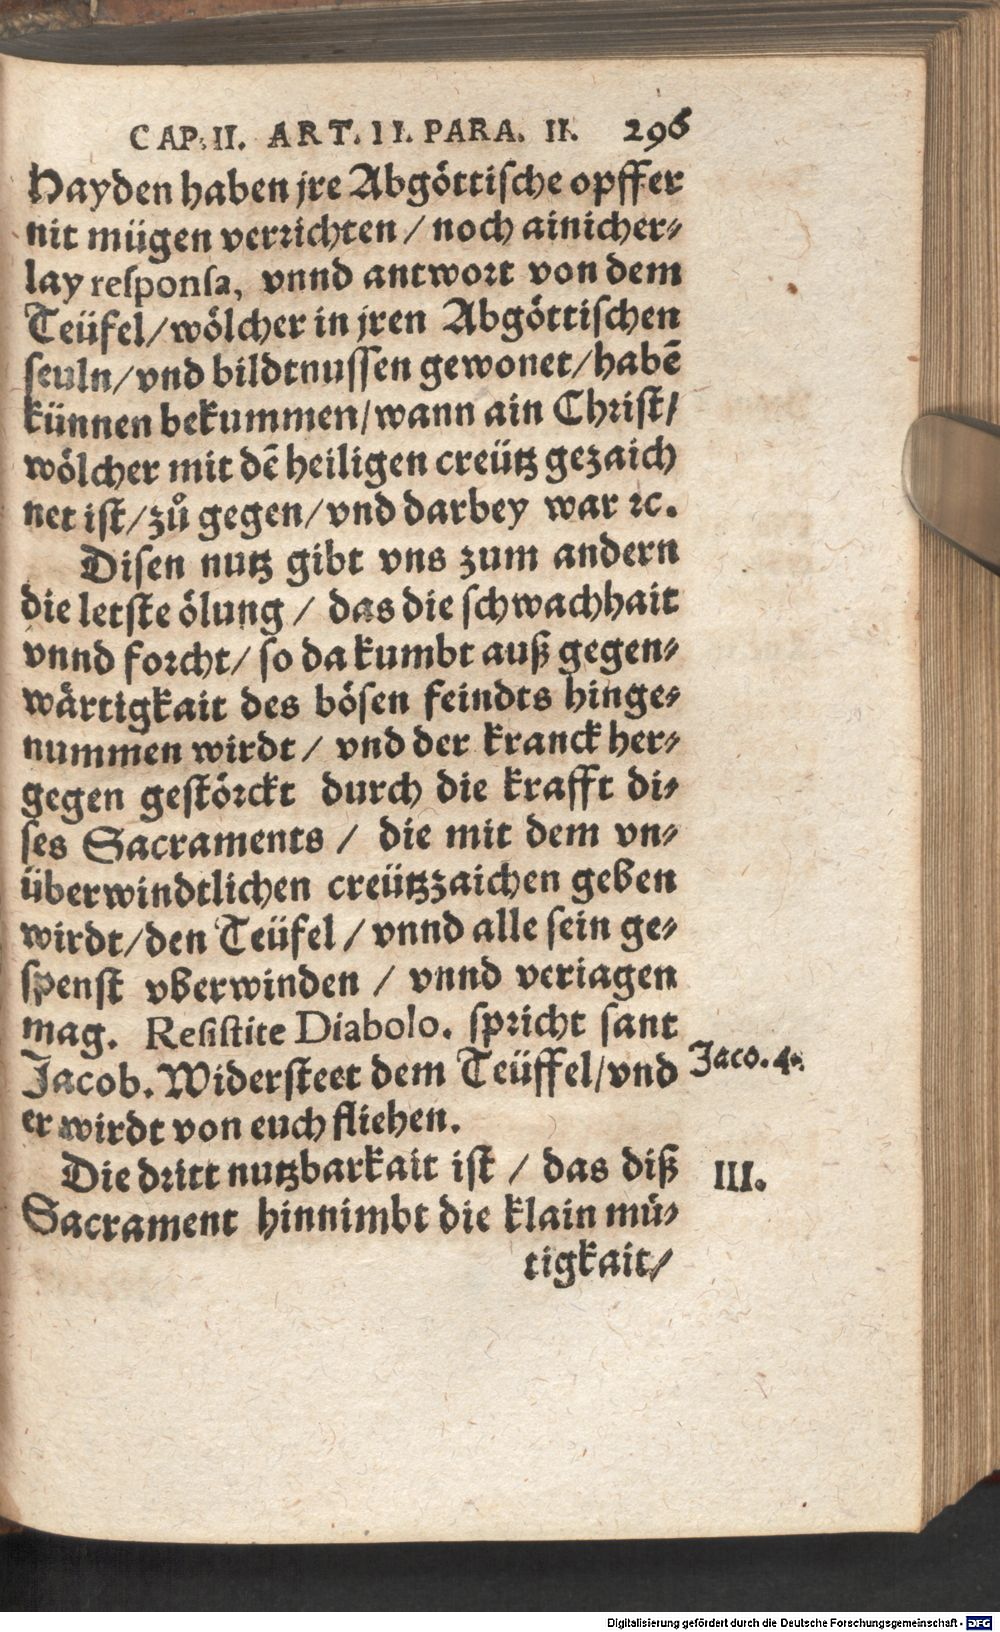 CAP. II. ART. II. PARA. II. 296
Hayden haben jre Abgöttische opffer
nit mügen verrichten / noch ainicher⸗
lay responsa, vnnd antwort von dem
Teüfel/wölcher in jren Abgöttischen
seuln/vnd bildtnussen gewonet/habē
künnen bekummen/wann ain Christ/
wölcher mit dē heiligen creütz gezaich
net ist/zů gegen/vnd darbey war ꝛc.
Disen nutz gibt vns zum andern
die letste ölung / das die schwachhait
vnnd forcht/ so da kumbt auß gegen⸗
wärtigkait des bösen feindts hinge⸗
nummen wirdt / vnd der kranck her⸗
gegen gestörckt durch die krafft di⸗
ses Sacraments / die mit dem vn⸗
überwindtlichen creützzaichen geben
wirdt/den Teüfel / vnnd alle sein ge⸗
spenst vberwinden / vnnd veriagen
mag. Resistite Diabolo. spricht sant
Jacob. Widersteet dem Teüffel/vnd
er wirdt von euch fliehen.
Jaco. 4.
Die dritt nutzbarkait ist / das diß
III.
Sacrament hinnimbt die klain mü⸗
tigkait/
Digitalisierung gefördert durch die Deutsche Forschungsgemeinschaft - DFG